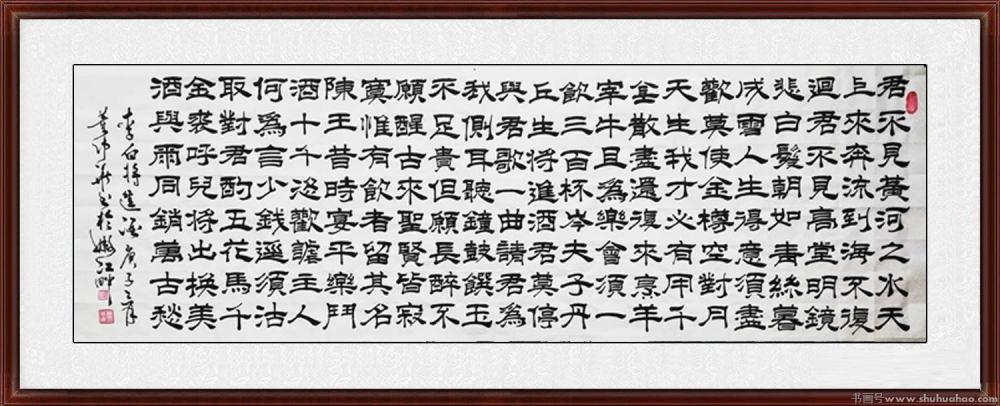 君不見黃河之水天
上來奔流到海不復
迴君不見高堂明鏡
悲白髮朝如青絲暮
成雪人生得意須盡
歡莫使金樽空對月
天生我才必有用千
金散盡還復來烹羊
宰牛且為樂會須一
飲三百杯岑夫子丹
丘生將進酒君莫停
與君歌一曲請君為
我側耳聽鐘鼓饌玉
不足貴但願長醉不
願醒古來聖賢皆寂
寞惟有飲者留其名
陳王昔時宴平樂鬥
酒十千恣歡謔主人
何為言少錢逕須沽
取對君酌五花馬千
金裘呼兒將出換美
酒與爾同銷萬古愁
李白將進酒庚子之
書於江畔
书画号www.shuhuahao.com